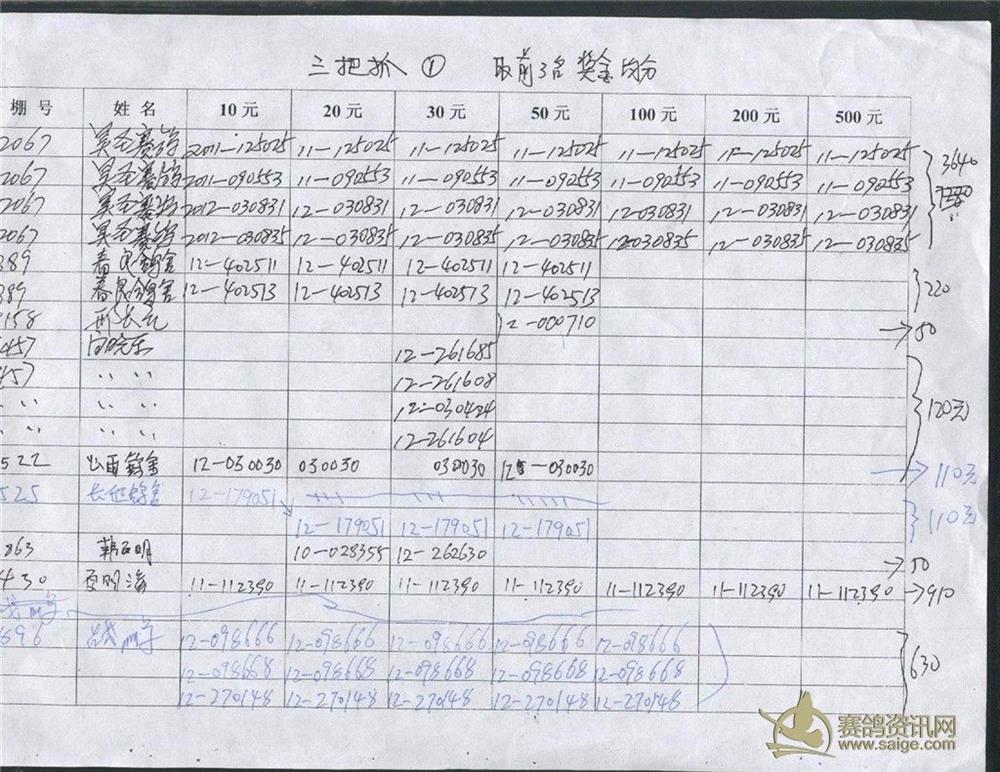 三把抓 ① 取前3名 奖金均分
棚号 姓名 10元 20元 30元 50元 100元 200元 500元
2067 昊圣赛鸽 2011-125025 11-125025 11-125025 11-125025 11-125025 11-125025 11-125025
2067 昊圣赛鸽 2011-090553 11-090553 11-090553 11-090553 11-090553 11-090553 11-090553 3640
2067 昊圣赛鸽 2012-030831 12-030831 12-030831 12-030831 12-030831 12-030831 12-030831
2067 昊圣赛鸽 2012-030835 12-030835 12-030835 12-030835 12-030835 12-030835 12-030835
389 春民鸽舍 12-402511 12-402511 12-402511 12-402511
389 春民鸽舍 12-402513 12-402513 12-402513 12-402513 220
158 12-000710 →50
457 12-261685
457 〃 〃 12-261608
〃 〃 〃 12-030424 120元
〃 〃 〃 12-261604
522 山西鸽舍 12-030030 030030 030030 12-030030 →110元
525 鸽舍 12-179051
12-179051 12-179051 12-179051 110元
863 明 10-028355 12-262630 →50
430 海 11-112390 11-112390 11-112390 11-112390 11-112390 11-112390 11-112390 →910
696 12-098666 12-098666 12-098666 12-098666 12-098666
12-098668 12-098668 12-098668 12-098668 12-098668 630
12-270148 12-270148 12-270148 12-270148 12-270148
赛鸽资讯网
www.saige.com